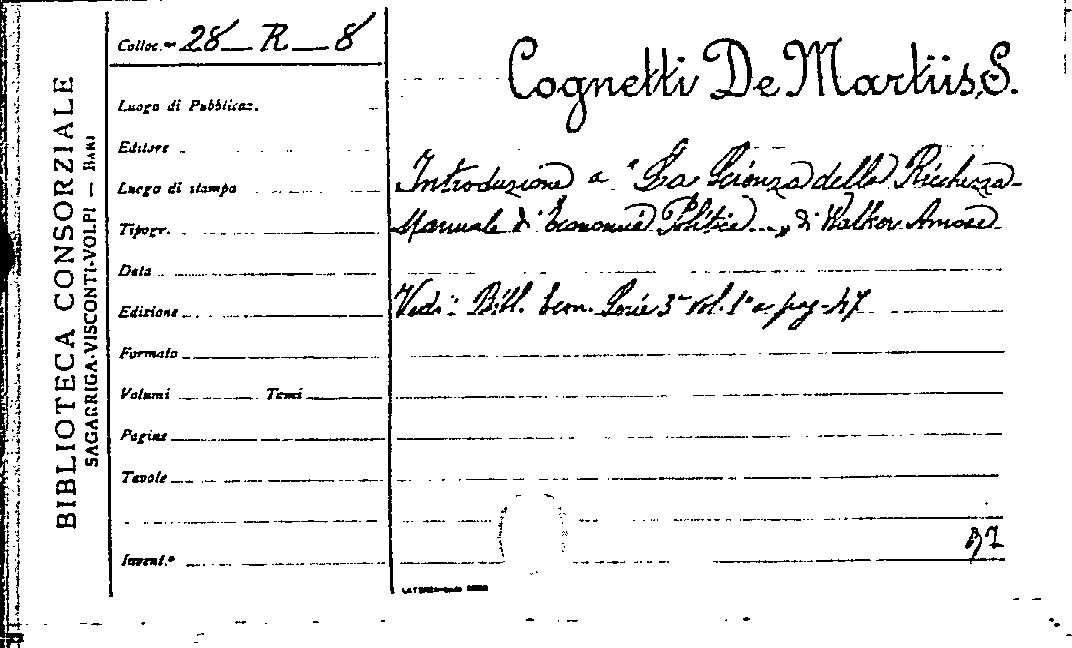 BIBLIOTECA CONSORZIALE
SAGARRIGA-VISCONTI-VOLPI — BARI
Colloc.ne 28_R_8
Luogo di Pubblicaz.
Editore
Luogo di stampa
Tipogr.
Data
Edizione
Formato
Volumi Tomi
Pagine
Tavole
Invent.º
Cognetti De Martiis, S.
Introduzione a "La Scienza della Ricchezza-
Manuale di Economia Politica...„ di Walker Amasa
Vedi: Bibl. Econ. Serie 3ª vol. 1º a pag. 47